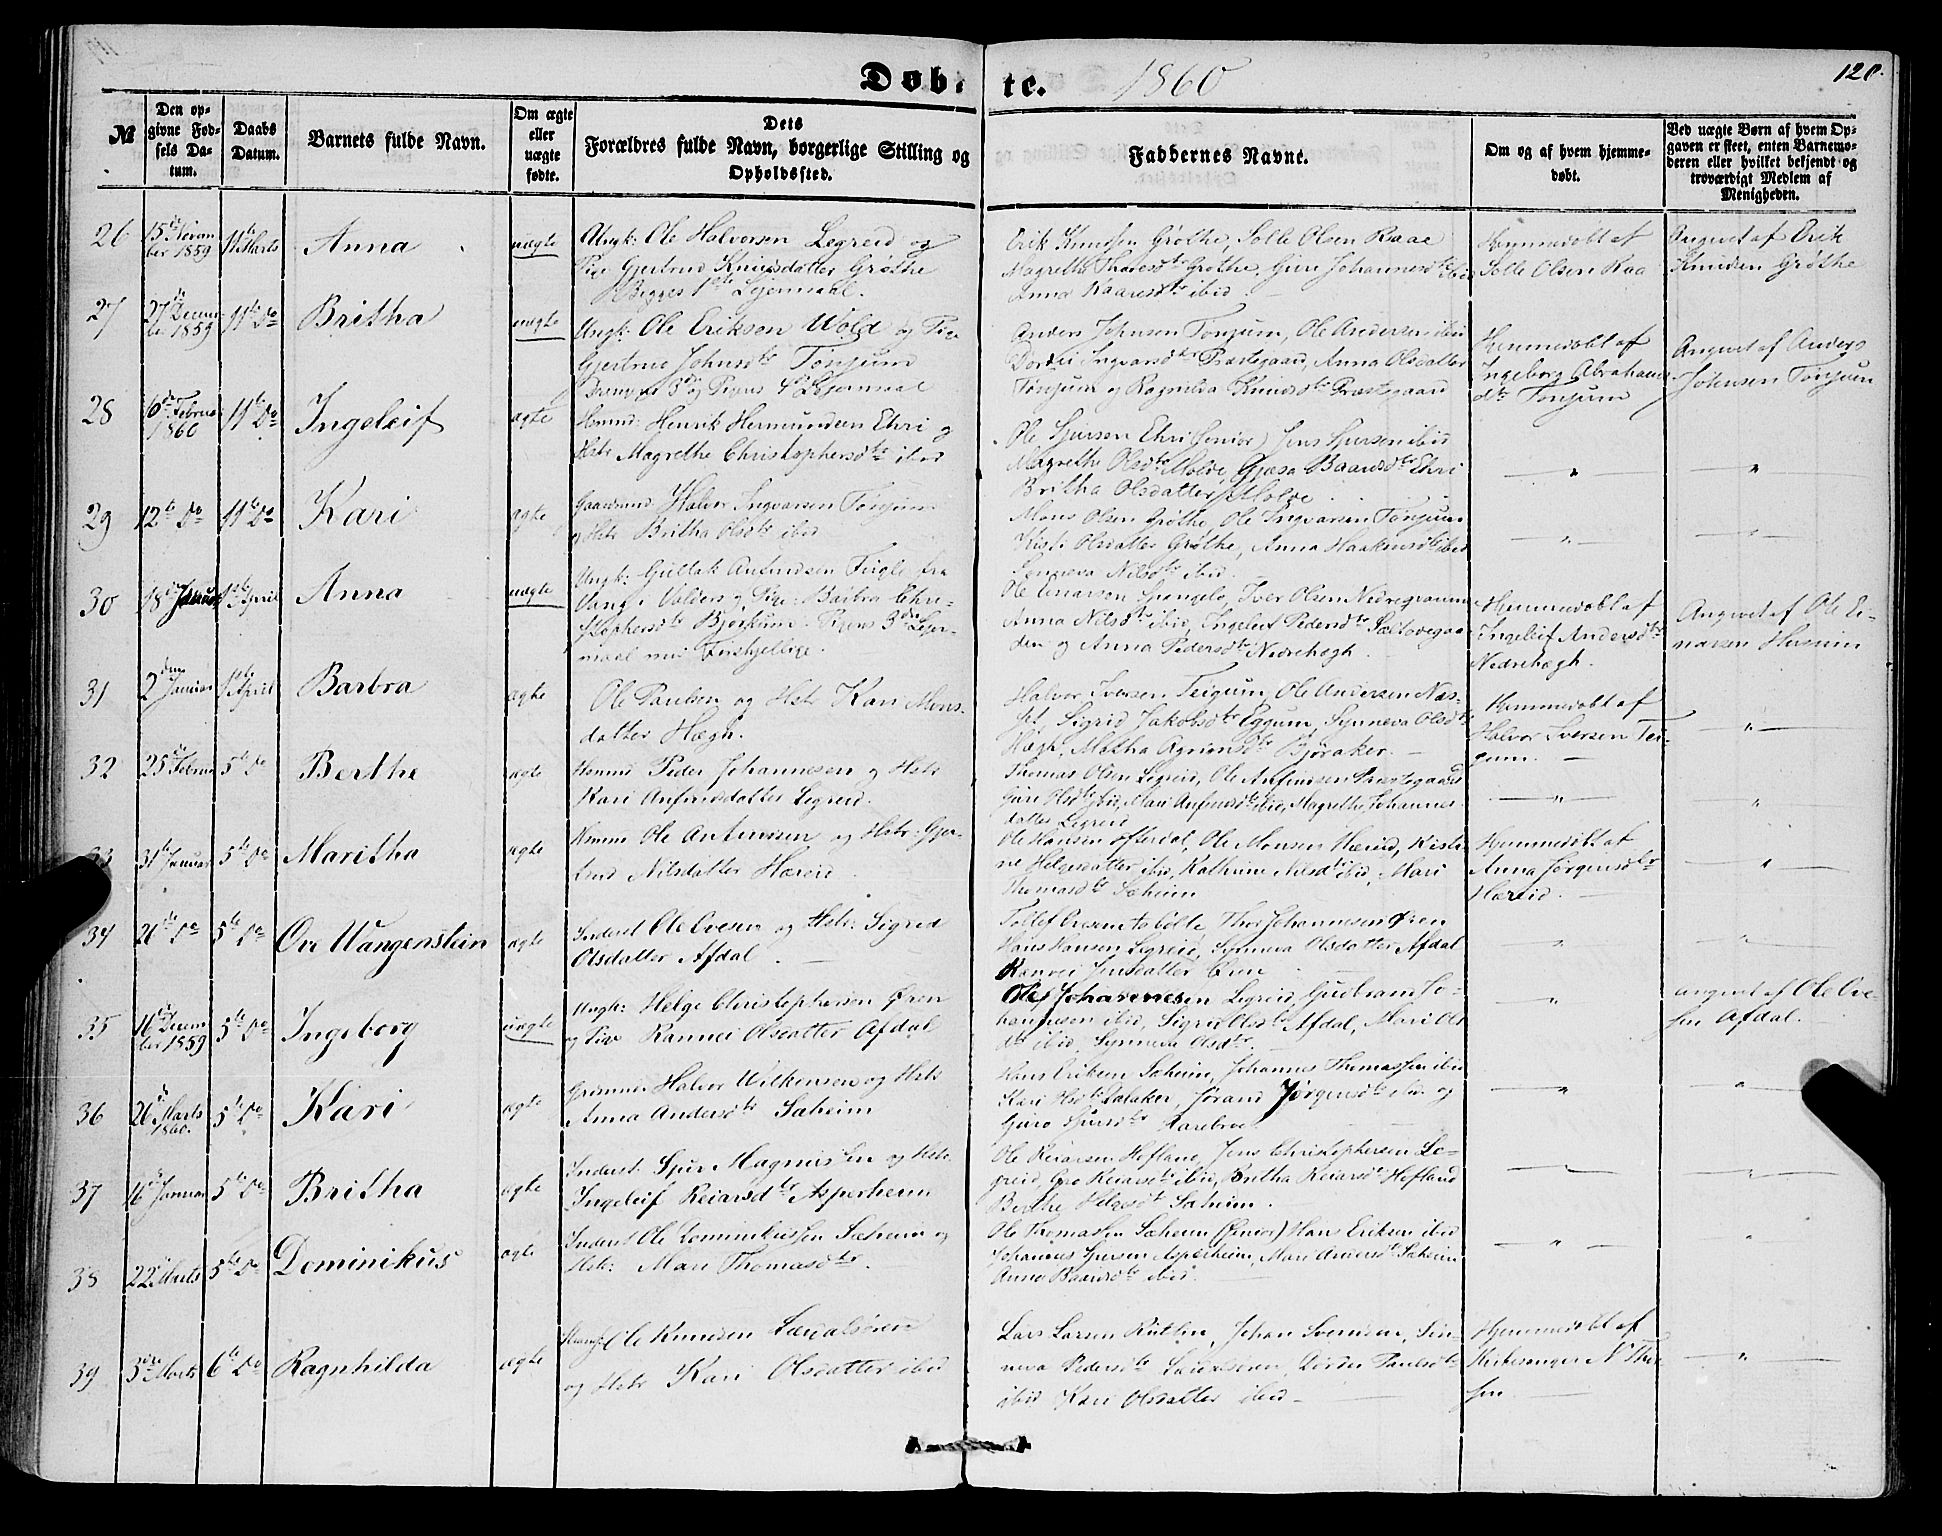 Døbte. 1860
120.
№
Den opgivne Fødsels Datum.
Daabs Datum.
Barnets fulde Navn.
Om ægte eller uægte fødte.
Dets Forældres fulde Navn, borgerlige Stilling og Opholdssted.
Faddernes Navne.
Om og af hvem hjemmedøbt.
Ved uægte Børn af hvem Opgaven er skeet, enten Barnemoderen eller hvilket bekjendt og troværdigt Medlem af Menigheden.
26 15de Novem
ber 1859 11te Marts Anna uægte
Ungk: Ole Halvorsen Legreid og
Pige Gjertrud Knudsdatter Grøthe
Begges 1ste Lejermaal.
Erik Knudsen Grøthe, Solle Olsen Raae
Magrethe Grøthe, Guri Johannesdtr ibid
Anna Kaaresdtr ibid.
Hjemmedøbt af
Solle Olsen Raa
Angivet af Erik
Knudsen Grøthe
27 27de Decem
ber 1859 11te Do Britha uægte
Ungk: Ole Eriksen Wold og Pige
Gjertrud Johnsdtr Tønjum
3die og Pigens 4de Lejermaal
Anders Johnsen Tønjum, Ole Andersen ibid
Dordei Ingvarsdtr Præstegaard, Anna Olsdatter
Tønjum og Ragnilda Knudsdtr Præstegaard
Hjemmedøbt af
Ingeborg Abrahams
dtr Tønjum
Angivet af Anders
Johnsen Tønjum
28 10de Februar
1860 11te Do Ingeleif ægte
Huusmd: Henrik Hermundsen Ehri og
Hstr Magrethe Christophersdtr ibid
Ole Sjursen Ehri (senior) Jens Sjursen ibid
Magrethe Olsdtr Molde, Gjøsa Baardsdtr Ehri
Britha Olsdatter Molde
" "
29 12te Do 11te Do Kari ægte
Gaardmd Halvor Ingvarsen Tønjum
og Hstr Britha Olsdtr ibid
Mons Olsen Grøthe, Ole Ingvarsen Tønjum
Kisti Olsdatter Grøthe, Anna Haakensdtr ibid
Synneva Nilsdtr ibid.
" "
30 18de Januar 1ste April Anna uægte
Ungk: Gullak Anfindsen Tugle fra
Vang i Valders og Pige: Barbra Chri-
stophersdtr Bjørkum. Pigens 3die Lejer-
maal med forskjellige.
Ole Einarsen Spangelo, Iver Olsen Nedregraum
Anna Nilsdtr ibid, Ingeleif Pedersdtr
den og Anna Pedersdtr Nedrehægh
Hjemmedøbt af
Ingeleif Andersdtr
Nedrehægh.
Angivet af Ole Ei-
narsen Husum
31 2den Januar 1ste April Barbra ægte
Ole Paulsen og Hstr Kari Mons-
datter Hægh.
Halvor Iversen Teigum, Ole Andersen Næs-
se, Sigrid Jakobsdtr Eggum, Synneva Olsdtr
Hægh, Martha Bjøraker.
Hjemmedøbt af
Halvor Iversen Tei-
gum.
"
32 25de Februar 5te Do Berthe ægte
Huusmd Peder Johannesen og Hstr
Kari Anfindsdatter Legreid.
Thomas Olsen Legreid, Ole Anfindsen Præstegaard
Guri Olsdtr ibid, Mari Anfindsdtr ibid, Magrethe Johannes
datter Legreid
" "
33 31te Januar 5te Do Maritha ægte
Ole Antonisen og Hstr: Gjer-
trud Nilsdatter Hæreid
Ole Hansen Ofterdal, Ole Monsen Hæreid, Kisti-
ne Helgesdatter ibid, Kathrine Nilsdtr ibid, Mari
Thomasdtr Sæheim
Hjemmedøbt af
Anna Jørgensdtr
Hæreid.
"
34 21de Do 5te Do Ove Wangenstein ægte
Inderst Ole Ovesen og Hstr: Sigrid
Olsdatter Afdal.
Tollef Ovesen, Thor Johannesen Øren
Hans Hansen Legreid, Synneva Olsdatter Afdal
Ranvei Jensdatter
" "
35 16de Decem
ber 1859 5te Do Ingeborg uægte
Ungk: Helge Christophersen Øren
og Pige Rannei Olsdatter Afdal
Ole Johannesen Legreid, Gudbrand Jo-
hannesen ibid, Sigrid Olsdtr Afdal, Mari Ols
dtr ibid, Synneva Olsdtr.
"
angivet af Ole Ove-
sen Afdal.
36 26de Marts
1860. 5te Do Kari ægte
Halvor Wilkensen og Hstr
Anna Andersdtr Saheim
Hans Eriksen Saheim, Johannes Thomassen ibid
Kari Olsdtr, Jørand Jørgensdtr ibid og
Guro Sjursdtr Aarebroe
" "
37 16de Januar 5te Do Britha ægte
Inderst: Sjur Magnussen og Hstr
Ingeleif Reiarsdtr Asperheim
Ole Reiarsen Hefland, Jens Christophersen Le-
greid, Gro Reiarsdtr ibid, Britha Reiarsdtr Hefland
Berthe Helgesdtr Saheim.
" "
38 22de Marts 5te Do Dominikus ægte
Inderst Ole Dominikussen Sæheim og
Hstr: Mari Thomasdtr.
Ole Thomassen Sæheim (senior) Hans Eriksen ibid
Johannes Sjursen Asperheim, Mari Andersdtr Sæheim
Anna Baardsdtr ibid.
" "
39 3die Marts 6te Do Ragnhilda ægte
Ole Knudsen Lærdalsøren
og Hstr Kari Olsdatter ibid
Lars Larsen Rutlin, Johan Svendsen, Sin-
neva Pedersdtr Lærdalsøren, Dordei Paulsdtr
ibid Kari Olsdatter ibid
Hjemmedøbt af
Kirkesanger N. Thor
sen
"